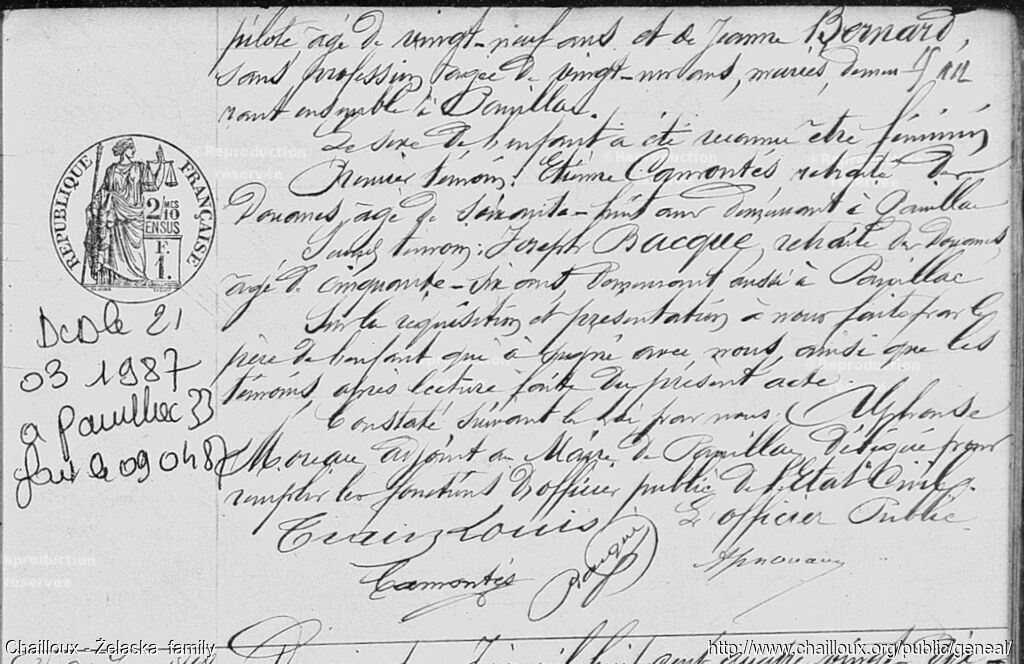 pilote âgé de vingt-neuf ans et de Jeanne Bernard,
sans profession âgée de vingt-un ans, mariés, demeu-
rant ensemble à Pauillac.
Le sexe de l'enfant a été reconnu être féminin
Premier témoin: Etienne Camontés, retraité des
Douanes, âgé de soixante-huit ans demeurant à Pauillac
Second témoin: Joseph Bacque, retraité des Douanes
âgé de cinquante-six ans demeurant aussi à Pauillac
Sur la réquisition et présentation à nous faite par le
père de l'enfant qui a signé avec nous, ainsi que les
témoins, après lecture faite du présent acte.
Constaté suivant la loi par nous, Alphonse
Moreau adjoint au Maire de Pauillac, délégué pour
remplir les fonctions d'officier public de l'Etat Civil.
L'officier Public
Louis
Camontés
Bacque
AMoreau
RÉPUBLIQUE FRANÇAISE
2 MES
10
EN SUS
F.
1.
DCD le 21
03 1987
a Pauillac 33
fait le 09 04 87
Reproduction
réservée
Chailloux - Żelaska family
http://www.chailloux.org/public/geneal/